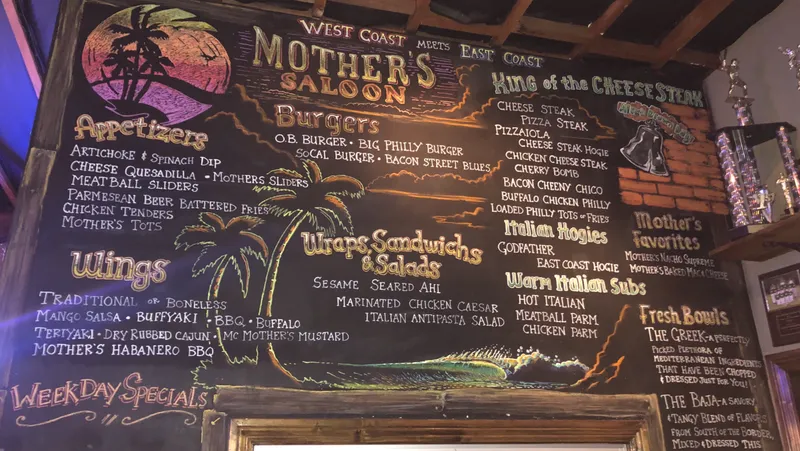 WEST COAST MEETS EAST COAST
MOTHER'S
SALOON
Appetizers
ARTICHOKE & SPINACH DIP
CHEESE QUESADILLA • MOTHERS SLIDERS
MEATBALL SLIDERS
PARMESEAN BEER BATTERED FRIES
CHICKEN TENDERS
MOTHER'S TOTS
Wings
TRADITIONAL OR BONELESS
MANGO SALSA • BUFFYAKI • BBQ • BUFFALO
TERIYAKI • DRY RUBBED CAJUN • MC MOTHER'S MUSTARD
MOTHER'S HABANERO BBQ
WEEKDAY SPECIALS
Burgers
O.B. BURGER • BIG PHILLY BURGER
SOCAL BURGER • BACON STREET BLUES
Wraps, Sandwichs
& Salads
SESAME SEARED AHI
MARINATED CHICKEN CAESAR
ITALIAN ANTIPASTA SALAD
KING of the CHEESE STEAK
CHEESE STEAK
PIZZA STEAK
PIZZAIOLA
CHEESE STEAK HOGIE
CHICKEN CHEESE STEAK
CHERRY BOMB
BACON CHEENY CHICO
BUFFALO CHICKEN PHILLY
LOADED PHILLY TOTS OR FRIES
Italian Hogies
GODFATHER
EAST COAST HOGIE
Warm Italian Subs
HOT ITALIAN
MEATBALL PARM
CHICKEN PARM
Mother's
Favorites
MOTHER'S NACHO SUPREME
MOTHER'S BAKED MAC & CHEESE
Fresh Bowls
THE GREEK - A PERFECTLY
PICKED PLETHORA OF
MEDITERRANEAN INGREDIENTS
THAT HAVE BEEN CHOPPED
& DRESSED JUST FOR YOU!
THE BAJA - A SAVORY
& TANGY BLEND OF FLAVORS
FROM SOUTH OF THE BORDER,
MIXED & DRESSED THIS